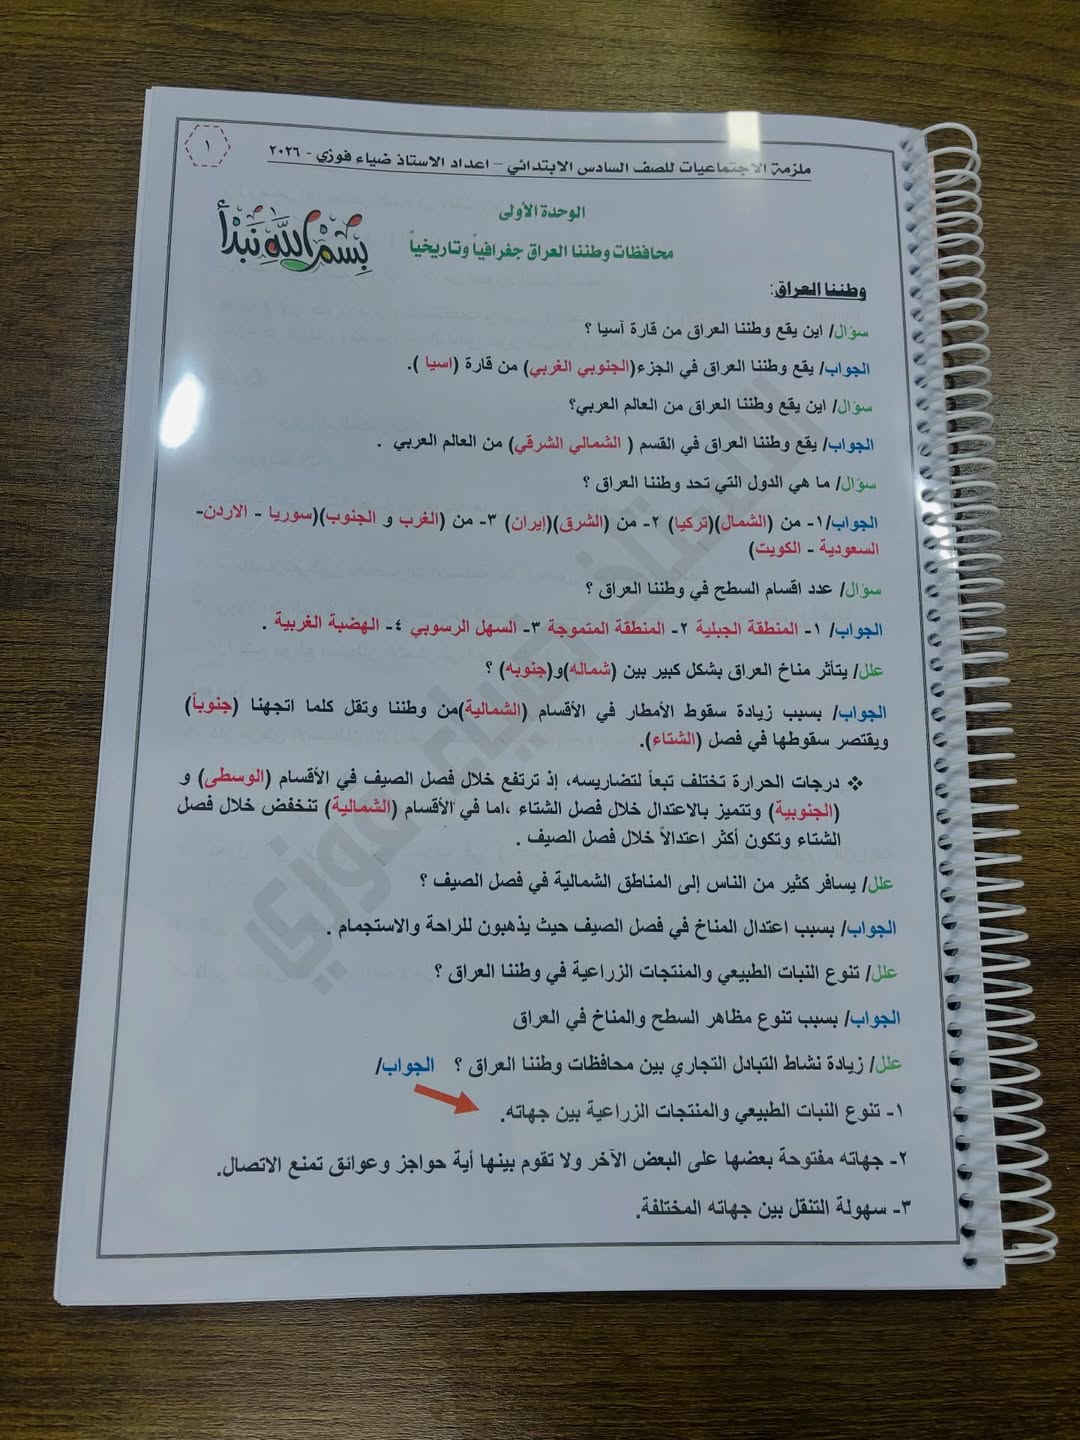 ملزمة الاجتماعيات للصف السادس الابتدائي – اعداد الاستاذ ضياء فوزي - ٢٠٢٦
١
الوحدة الأولى
بسم الله نبدأ
محافظات وطننا العراق جغرافياً وتاريخياً
وطننا العراق:
سؤال/ اين يقع وطننا العراق من قارة آسيا ؟
الجواب/ يقع وطننا العراق في الجزء(الجنوبي الغربي) من قارة (اسيا ).
سؤال/ اين يقع وطننا العراق من العالم العربي؟
الجواب/ يقع وطننا العراق في القسم ( الشمالي الشرقي) من العالم العربي .
سؤال/ ما هي الدول التي تحد وطننا العراق ؟
الجواب/١- من (الشمال)(تركيا) ٢- من (الشرق)(إيران) ٣- من (الغرب و الجنوب)(سوريا - الاردن-
السعودية - الكويت)
سؤال/ عدد اقسام السطح في وطننا العراق ؟
الجواب/ ١- المنطقة الجبلية ٢- المنطقة المتموجة ٣- السهل الرسوبي ٤- الهضبة الغربية .
علل/ يتأثر مناخ العراق بشكل كبير بين (شماله)و(جنوبه) ؟
الجواب/ بسبب زيادة سقوط الأمطار في الأقسام (الشمالية)من وطننا وتقل كلما اتجهنا (جنوباً)
ويقتصر سقوطها في فصل (الشتاء).
❖ درجات الحرارة تختلف تبعاً لتضاريسه، إذ ترتفع خلال فصل الصيف في الأقسام (الوسطى) و
(الجنوبية) وتتميز بالاعتدال خلال فصل الشتاء ،اما في الأقسام (الشمالية) تنخفض خلال فصل
الشتاء وتكون أكثر اعتدالاً خلال فصل الصيف .
علل/ يسافر كثير من الناس إلى المناطق الشمالية في فصل الصيف ؟
الجواب/ بسبب اعتدال المناخ في فصل الصيف حيث يذهبون للراحة والاستجمام .
علل/ تنوع النبات الطبيعي والمنتجات الزراعية في وطننا العراق ؟
الجواب/ بسبب تنوع مظاهر السطح والمناخ في العراق
علل/ زيادة نشاط التبادل التجاري بين محافظات وطننا العراق ؟ الجواب/
١- تنوع النبات الطبيعي والمنتجات الزراعية بين جهاته.
٢- جهاته مفتوحة بعضها على البعض الآخر ولا تقوم بينها أية حواجز وعوائق تمنع الاتصال.
٣- سهولة التنقل بين جهاته المختلفة.
الاستاذ ضياء فوزي